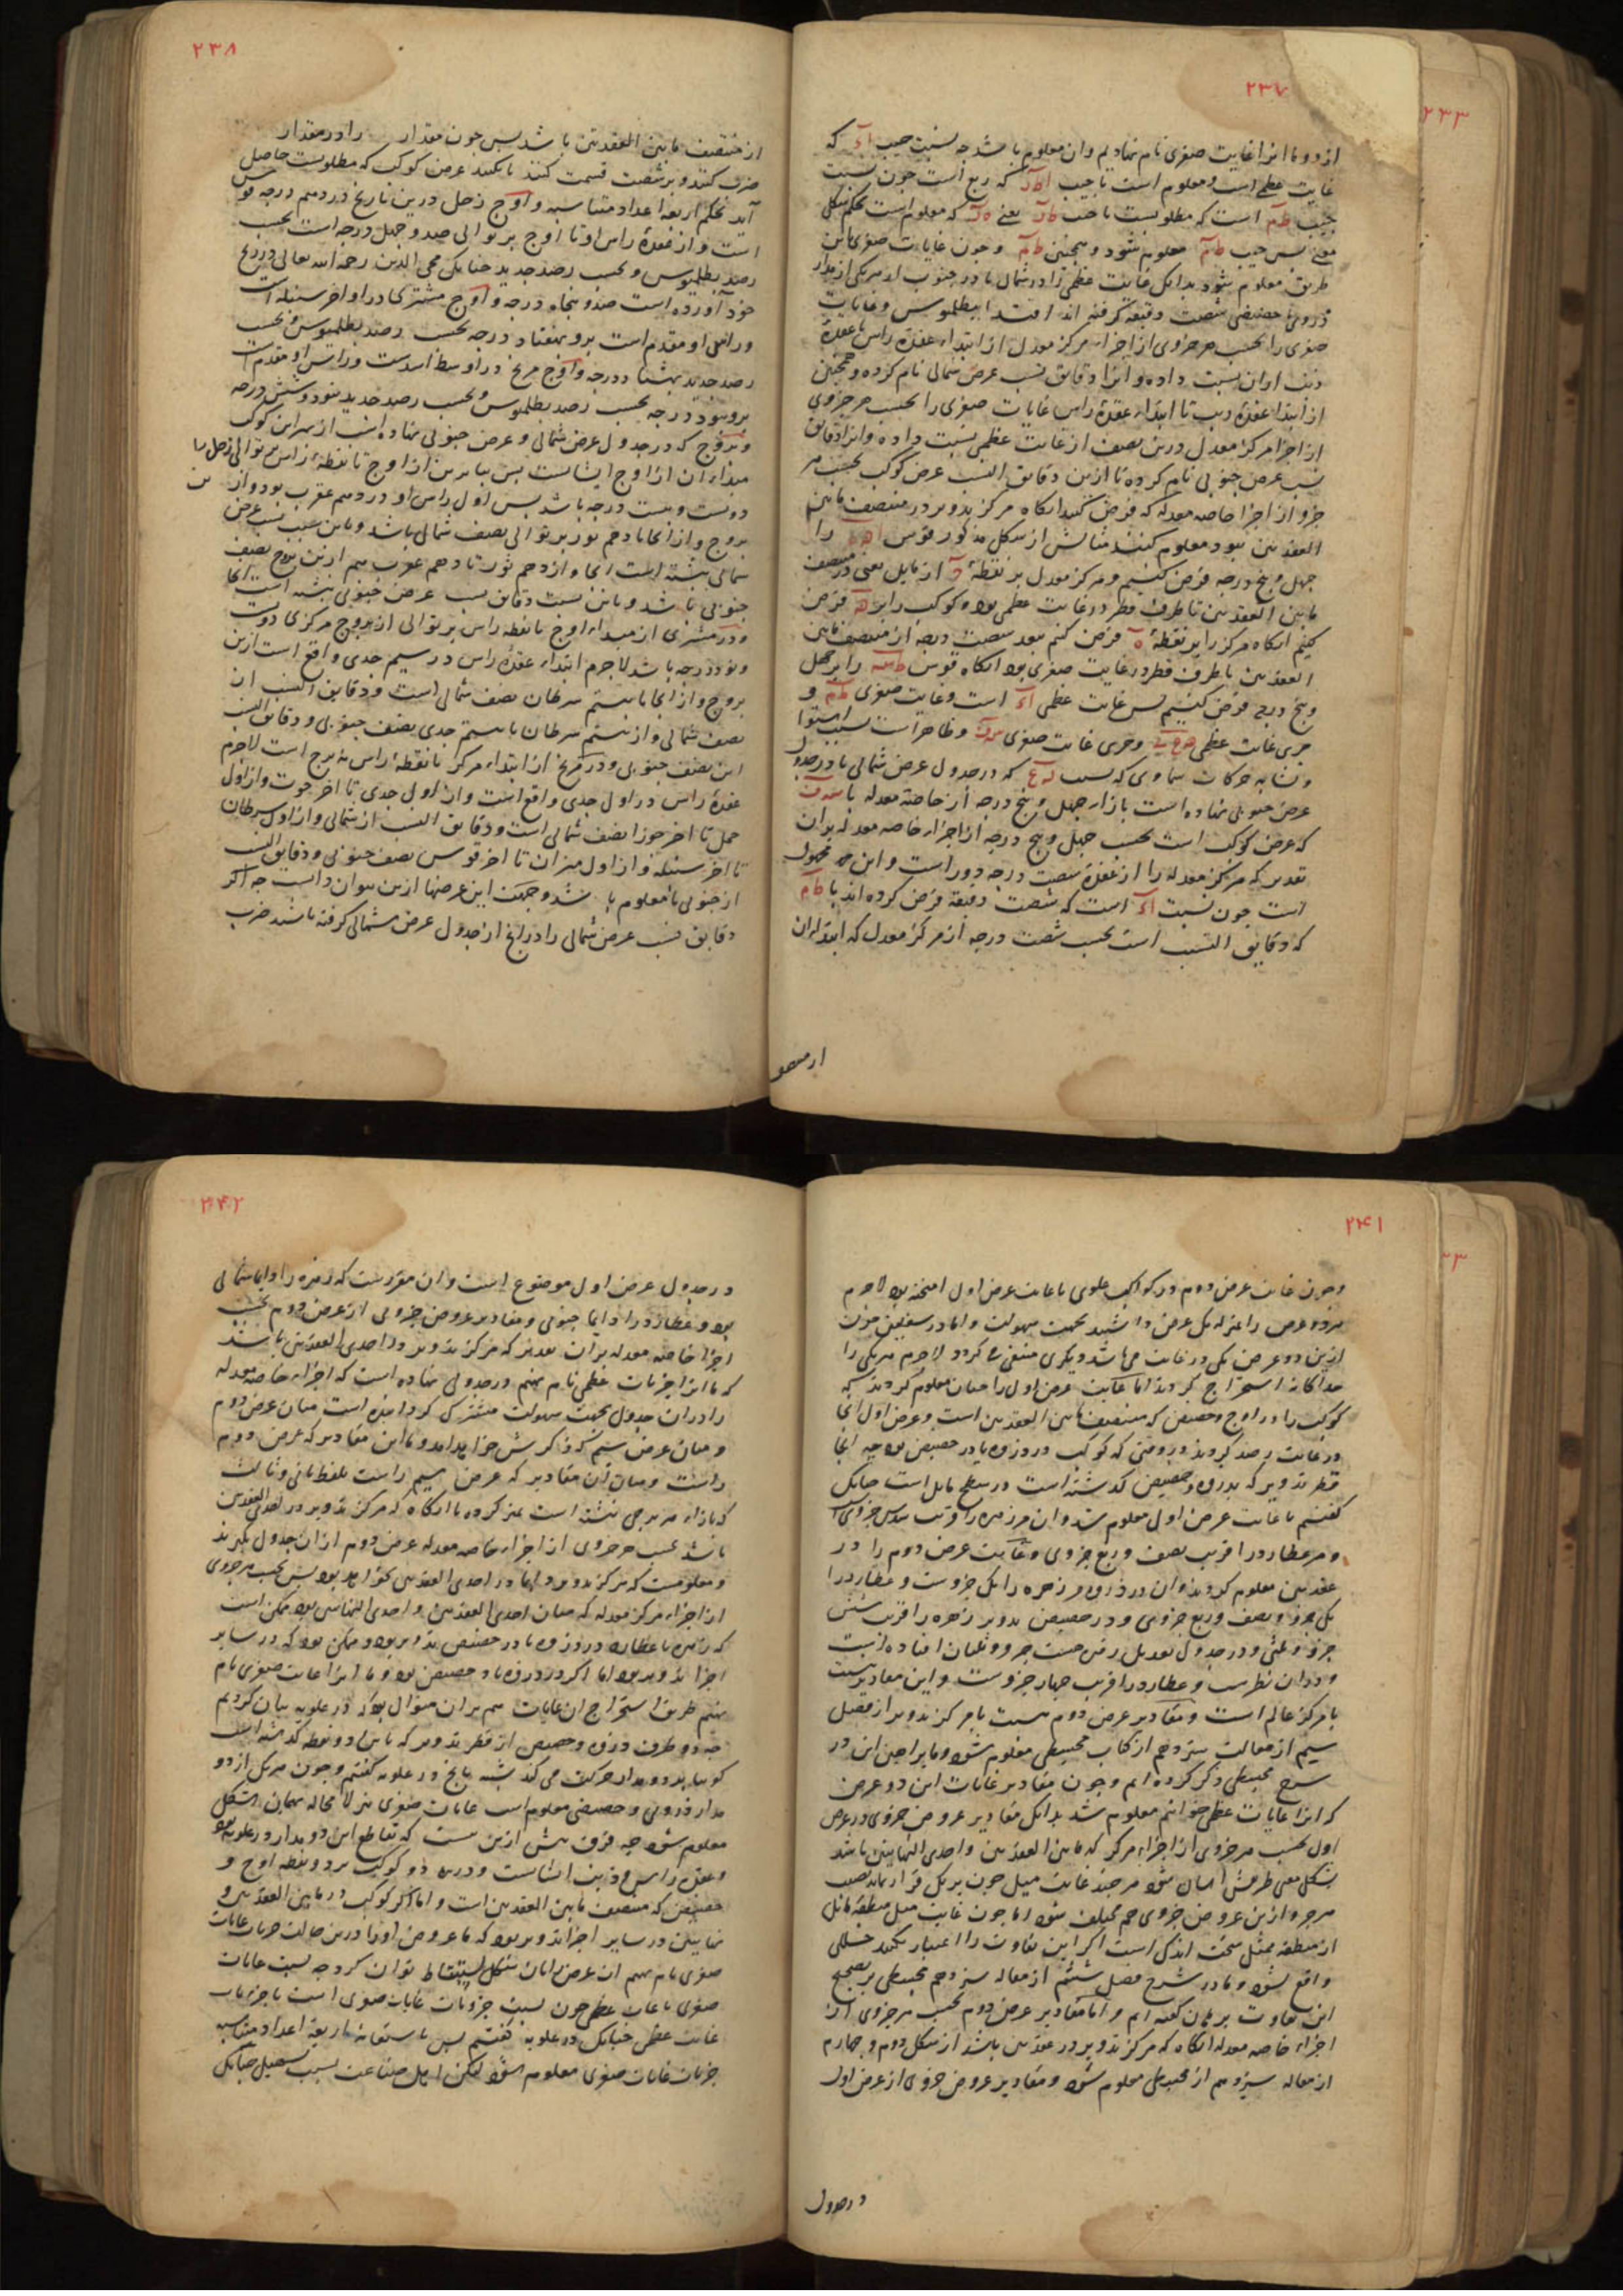 ۲۳۷
۲۳۳
از دو ما انرا غایت صغری نام نهادیم وان معلوم باشد چه نسبت جیب که
غایت عظمی است و معلوم است با جیب که ربع است چون نسبت
جیب است که مطلوبست با جیب یعنی که معلوم است بحکم شکل
مغنی پس جیب معلوم شود و همچنین و چون غایات صغری باین
طریق معلوم شود بدانک غایت عظمی را در شمال یا در جنوب از هر یکی از مدار
ذروی یا حضیضی شصت دقیقه گرفته اند اقتدا ببطلمیوس و غایات
صغری را بحسب هر جزوی از اجزاء مرکز معدل از ابتداء عقدهٔ راس تا عقدهٔ
ذنب ازان نسبت داده و انرا دقایق نسب عرض شمالی نام کرده و همچنین
از ابتداء عقدهٔ ذنب تا ابتداء عقدهٔ راس غایات صغری را بحسب هر جزوی
از اجزا مرکز معدل درین نصف از غایت عظمی نسبت داده و انرا دقایق
نسب عرض جنوبی نام کرده تا ازین دقایق النسب عرض کوکب بحسب هر
جزو از اجزا خاصه معدله که فرض کنند انگاه مرکز تدویر در منتصف مابین
العقدتین نبود معلوم کنند مثالش از شکل مذکور قوس را
چهل و پنج درجه فرض کنیم و مرکز معدل بر نقطهٔ از مایل یعنی در منتصف
مابین العقدتین تا طرف قطر در غایت عظمی بود و کوکب را بر فرض
کنیم انگاه مرکز را بر نقطهٔ فرض کنم ببعد شصت درجه از منتصف مابین
العقدتین تا طرف قطر در غایت صغری بود انگاه قوس را بر چهل
و پنج درجه فرض کنیم پس غایت عظمی است و غایت صغری و
جزی غایت عظمی و جزی غایت صغری و ظاهر است بسبب استوا
و تشابه حرکات سماوی که نسب که در جدول عرض شمالی یا در جدول
عرض جنوبی نهاده است بازاء چهل و پنج درجه از خاصهٔ معدله با
که عرض کوکب است بحسب چهل و پنج درجه از اجزاء خاصه معدله بران
تقدیر که مرکز معدله را از عقدهٔ شصت درجه دور است و این مجهول
است چون نسبت است که شصت دقیقه فرض کرده اند با
که دقایق النسب است بحسب شصت درجه از مرکز معدل که ابتداء ان
از منتصف
۲۳۸
از منتصف مابین العقدتین باشد پس چون مقدار را در مقدار
ضرب کنند و بر شصت قسمت کنند تا عرض کوکب که مطلوبست حاصل
آید بحکم اربعهٔ اعداد متناسبه و اوج زحل درین تاریخ در دهم درجه قوس
است و از عقدهٔ راس او تا اوج بر توالی صد و چهل درجه است بحسب
رصد بطلمیوس و بحسب رصد جدید چنانک محی الدین رحمه الله تعالی در زیج
خود آورده است صد و پنجاه درجه و اوج مشتری در اواخر سنبله است
و راس او مقدم است برو بهفتاد درجه بحسب رصد بطلمیوس و بحسب
رصد جدید بهشتاد درجه و اوج مریخ در اوسط اسدست و راس او مقدم است
برو بنود درجه بحسب رصد بطلمیوس و بحسب رصد جدید بنود و شش درجه
و بروج که در جدول عرض شمالی و عرض جنوبی نهاده اند از بهر این کوکب
مبداء ان از اوج ایشانست پس بنابرین از اوج تا نقطهٔ راس بر توالی زحل را
دویست و بیست درجه باشد پس اول راس او در دهم عقرب بود و از
بروج و از انجا تا دهم ثور بر توالی نصف شمالی باشد و باین سبب نسب عرض
شمالی نبشته است انجا و از دهم ثور تا دهم عقرب هم ازین بروج نصف
جنوبی باشد و باین نسبت دقایق نسب عرض جنوبی نبشته است انجا
و در مشتری از مبداء اوج تا نقطه راس بر توالی از بروج مرکزی دویست
و نود درجه باشد لاجرم ابتداء عقدهٔ راس در بیستم جدی واقع است ازین
بروج و از انجا تا بیستم سرطان نصف شمالی است و دقایق النسب از
نصف شمالی و از بیستم سرطان تا بیستم جدی نصف جنوبی و دقایق النسب
این نصف جنوبی و در مریخ از ابتداء مرکز تا نقطهٔ راس نه برج است لاجرم
عقدهٔ راس در اول جدی واقع است و از اول جدی تا اخر حوت و از اول
حمل تا اخر جوزا نصف شمالی است و دقایق النسب از شمالی و از اول سرطان
تا اخر سنبله و از اول میزان تا اخر قوس نصف جنوبی و دقایق النسب
از جنوبی تا معلوم باشد و جهت این عرضها ازین توان دانست چه اگر
دقایق نسب عرض شمالی را در زیج از جدول عرض شمالی گرفته باشند ضرب
۲۴۱
وچون غایت عرض دوم در کواکب علوی با غایت عرض اول امیخته بود لاجرم
هر دو عرض را بمنزله یک عرض داشتند بجهت سهولت و اما در سفلیین چون
ازین دو عرض یکی در غایت می باشد و یکری منتفی می گردد لاجرم هر یکی را
جداگانه استخراج کردند اما غایت عرض اول را چنان معلوم کردند که
کوکب را در اوج و حضیض که منتصف مابین العقدتین است و عرض اول انجا
در غایت رصد کردند در وقتی که کوکب در ذروه یا در حضیض بود چه انجا
قطر تدویر که بذروه و حضیض گذشته است در سطح مایل است چنانک
گفتیم تا غایت عرض اول معلوم شد و ان مر زهره را قریب سدس جزوی است
و مر عطارد را قریب نصف و ربع جزوی و غایت عرض دوم را در
عقدتین معلوم کردند و ان در ذروه مر زهره را یک جزوست و عطارد را
یک جزو و نصف و ربع جزوی و در حضیض تدویر زهره را قریب شش
جزو و ثلثی و در جدول تعدیل عرض هشت جزو و ثلثان افتاده است
و دران نظرست و عطارد را قریب چهار جزوست و این مقادیر نسبت
با مرکز عالم است و مقادیر عرض دوم نسبت با مرکز تدویر از فصل
سیم از مقالت سیزدهم از کتاب مجسطی معلوم شود و ما براهین این در
شرح مجسطی ذکر کرده ایم و چون مقادیر غایات این دو عرض
که انرا غایات عظمی خوانیم معلوم شد بدانک مقادیر عروض جزوی در عرض
اول بحسب هر جزوی از اجزاء مرکز که مابین العقدتین و احدی النهایتین باشد
بشکل مغنی طریقش اسان شود هر چند غایت میل چون بر یک قرار نماند نصیب
هر جزو ازین عروض جزوی هم مختلف شود اما چون غایت میل منطقهٔ مایل
از منطقه ممثل سخت اندک است اگر این تفاوت را اعتبار نکنند خللی
واقع نشود و ما در شرح فصل ششم از مقاله سیزدهم مجسطی بر تصحیح
این تفاوت برهان گفته ایم و اما مقادیر عرض دوم بحسب هر جزوی از
اجزاء خاصه معدله انگاه که مرکز تدویر در عقدتین باشد از شکل دوم و چهارم
از مقاله سیزدهم از مجسطی معلوم شود و مقادیر عروض جزوی از عرض اول
در جدول
۲۴۲
در جدول عرض اول موضوع است و ان مقررست که زهره را دایما شمالی
بود و عطارد را دایما جنوبی و مقادیر عروض جزوی از عرض دوم بحسب
اجزاء خاصه معدله بران تقدیر که مرکز تدویر در احدی العقدتین باشد
که ما انرا جزئیات عظمی نام نهیم در جدولی نهاده است که اجزاء خاصه معدله
را دران جدول بجهت سهولت مشترک گردانیده است میان عرض دوم
و میان عرض سیم که ذکرش خواهد امد و مابین مقادیر که عرض دوم
راست و میان ان مقادیر که عرض سیم راست بلفظ ثانی و ثالث
که بازاء هر برجی نبشته است تمیز کرده تا انگاه که مرکز تدویر در احدی العقدتین
باشد بحسب هر جزوی از اجزاء خاصه معدله عرض دوم ازان جدول بگیرند
و معلومست که مرکز تدویر دایما در احدی العقدتین نخواهد بود پس بحسب هر جزوی
از اجزاء مرکز معدله که میان احدی العقدتین و احدی النهایتین بود ممکن است
که زهره یا عطارد در ذروه یا در حضیض تدویر بود و ممکن بود که در سایر
اجزا تدویر بود اما اگر در ذروه یا در حضیض بود و ما انرا غایت صغری نام
نهیم طریق استخراج ان غایات هم بران منوال بود که در علویه بیان کردیم
چه دو طرف ذروه و حضیض از قطر تدویر که باین دو نقطه گذشته است
گوییا بر دو مدار حرکت می کند شبه بانچ در علویه گفتیم و چون هر یک از دو
مدار ذروی و حضیضی معلوم است غایات صغری نیز لا محاله بهمان شکل
معلوم شود چه فرق بیش ازین نیست که تقاطع این دو مدار در علویه بود
و عقدهٔ راس و ذنب ایشانست و درین دو کوکب بر دو نقطه اوج و
حضیض که منتصف مابین العقدتین است و اما اگر کوکب در مابین العقدتین و
نهایتین در سایر اجزا تدویر بود که ما عروض او را درین حالت جزئیات غایات
صغری نام نهیم ان عرض را بان شکل استنباط توان کرد چه نسبت غایات
صغری با غایات عظمی چون نسبت جزویات غایات صغری است با جزئیات
غایت عظمی چنانک در علویه گفتیم پس باستعانهٔ اربعهٔ اعداد متناسبه
جزئیات غایات صغری معلوم شود لیکن اهل صناعت بسبب تسهیل چنانک